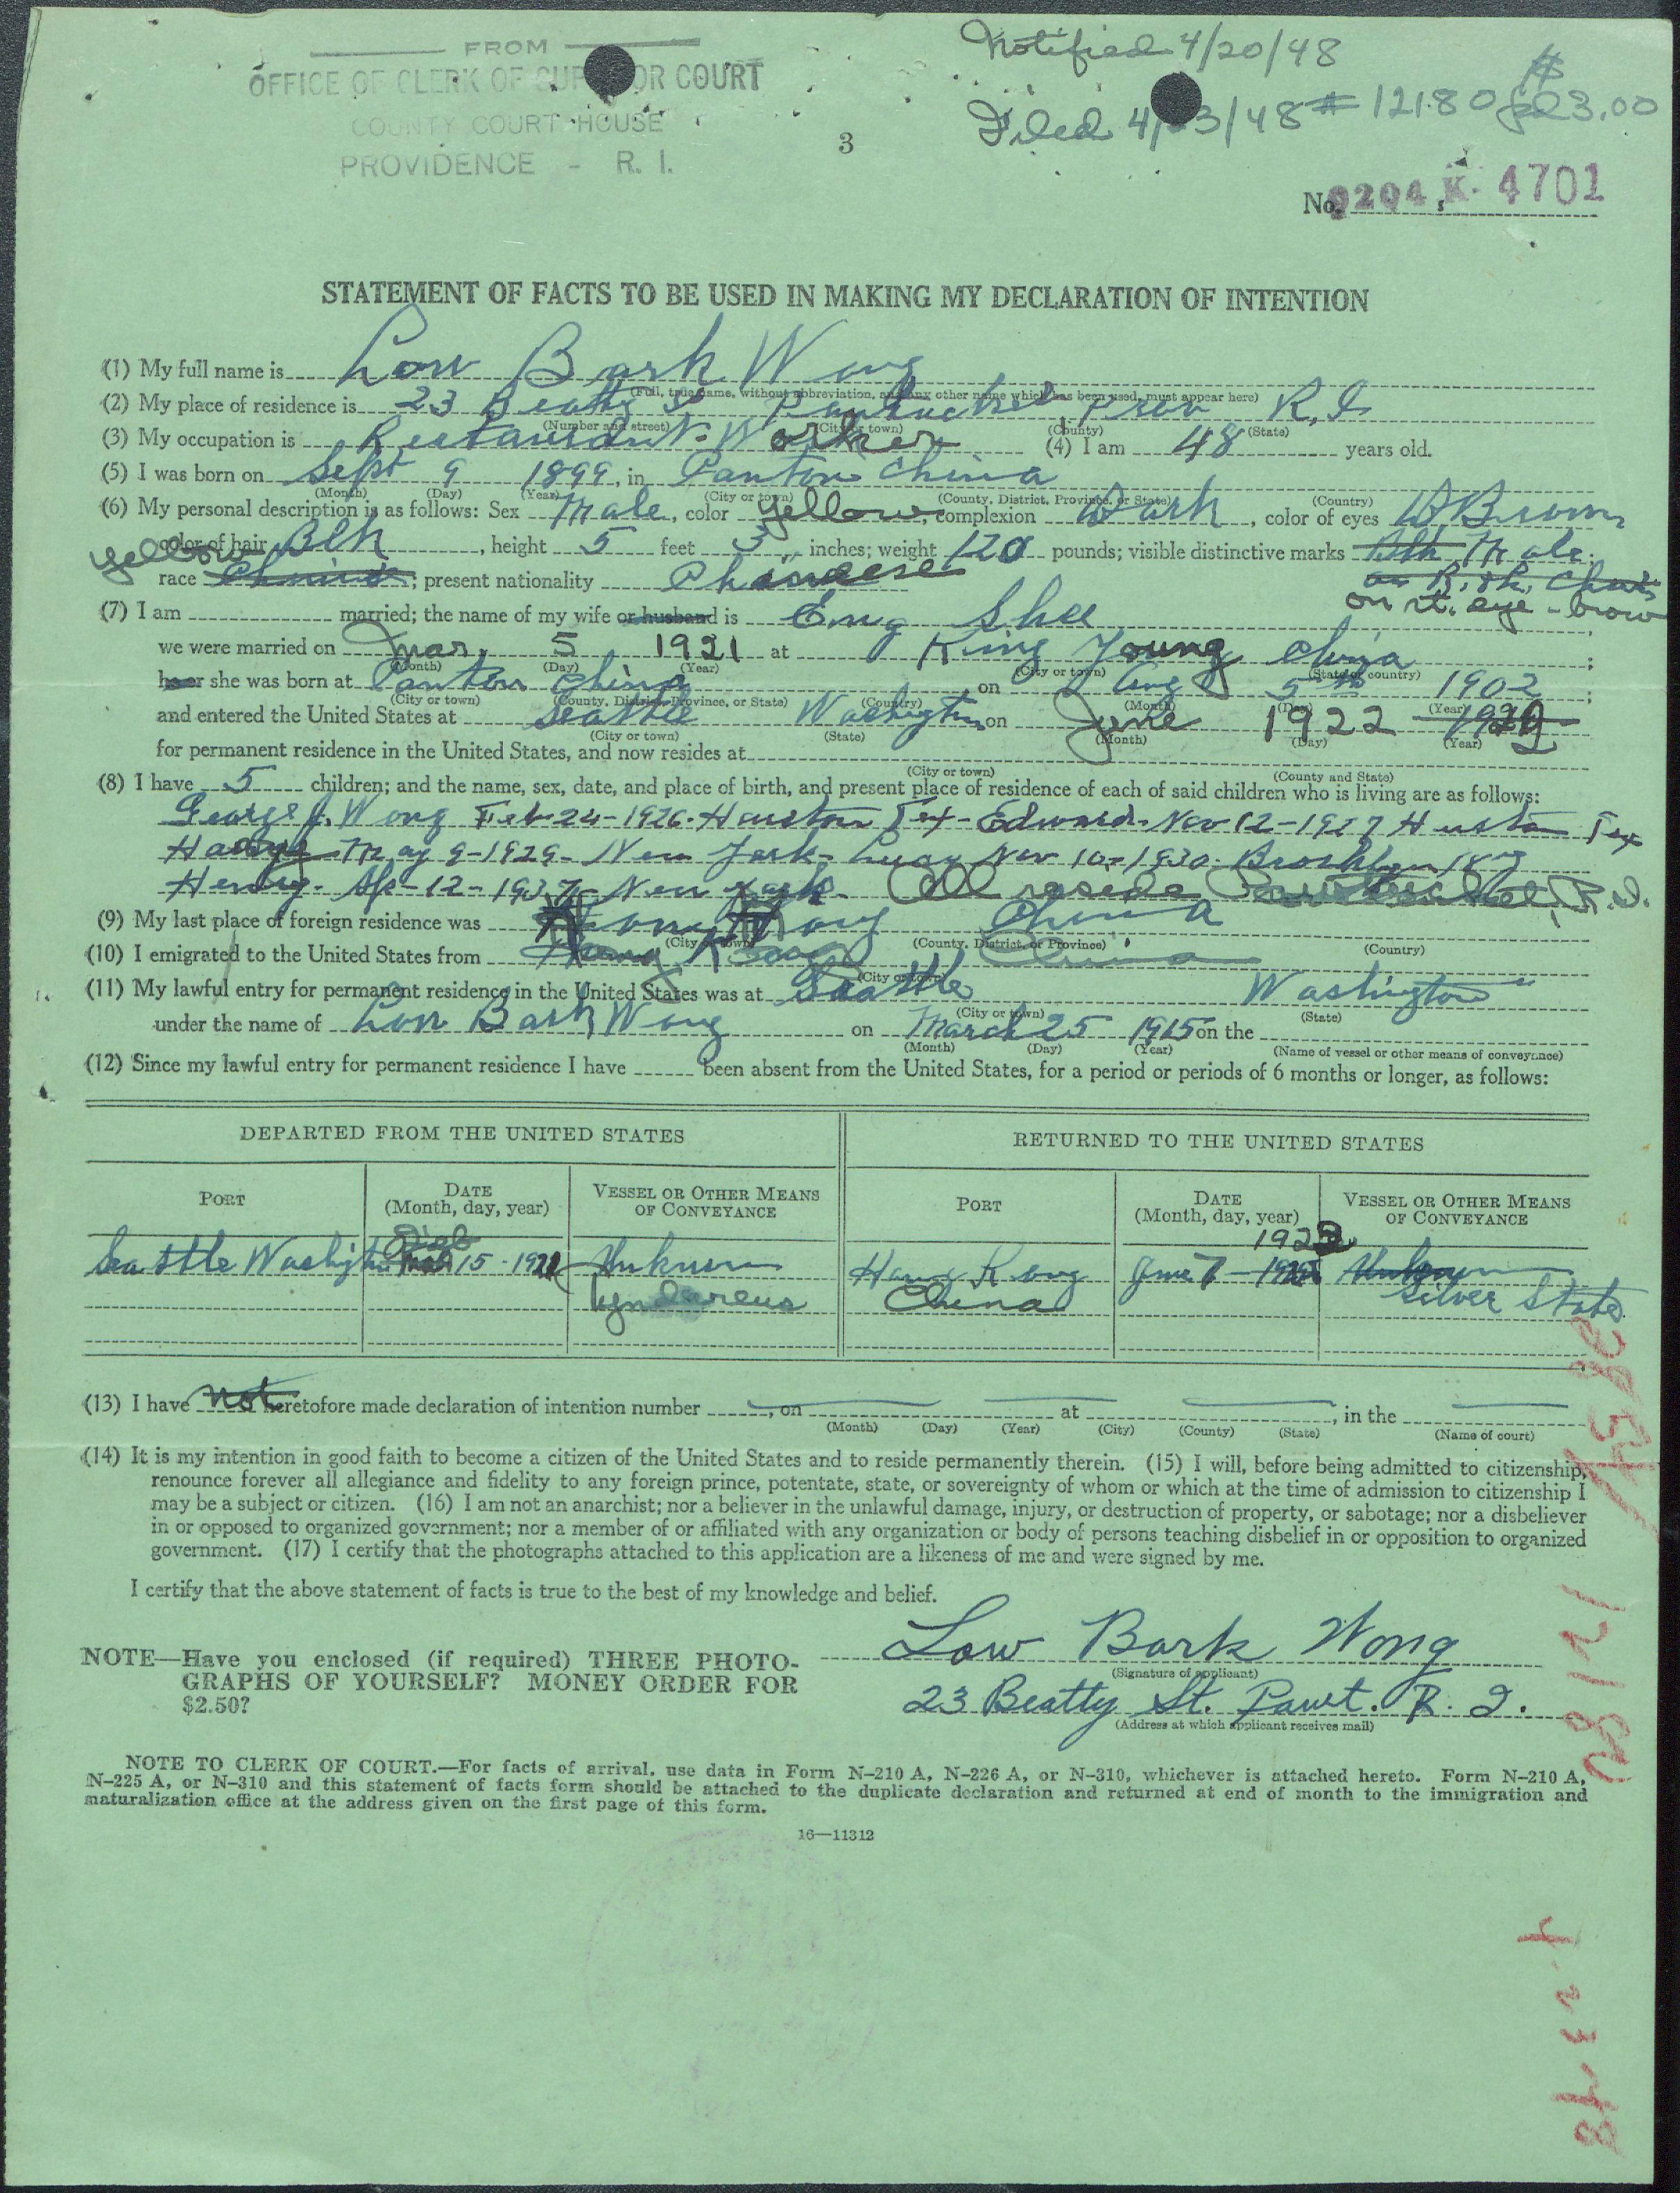 FROM
OFFICE OF CLERK OF SUPERIOR COURT
COUNTY COURT HOUSE
PROVIDENCE - R. I.
Notified 4/20/48
Filed 4/23/48 # 12180 $3.00
3
No. 0204 K. 4701
STATEMENT OF FACTS TO BE USED IN MAKING MY DECLARATION OF INTENTION
(1) My full name is Low Bark Wong
(Full, true name, without abbreviation, and any other name which has been used, must appear here)
(2) My place of residence is 23 Beatty St Pawtucket, Prov R.I.
(Number and street) (City or town) (County) (State)
(3) My occupation is Restaurant Worker (4) I am 48 years old.
(5) I was born on Sept 9 1899, in Canton China
(Month) (Day) (Year) (City or town) (County, District, Province, or State) (Country)
(6) My personal description is as follows: Sex Male, color yellow, complexion Dark, color of eyes D. Brown
yellow color of hair Blk, height 5 feet 3 inches; weight 120 pounds; visible distinctive marks Mole
race Chinese; present nationality Chinese on rt. eye-brow
(7) I am married; the name of my wife or husband is Eng Shee
we were married on Mar, 5 1921 at King Young China;
(Month) (Day) (Year) (City or town) (State or country)
he or she was born at Canton China on Aug 5th 1902;
(City or town) (County, District, Province, or State) (Country) (Month) (Day) (Year)
and entered the United States at Seattle Washington on June 1922
(City or town) (State) (Month) (Day) (Year)
for permanent residence in the United States, and now resides at
(City or town) (County and State)
(8) I have 5 children; and the name, sex, date, and place of birth, and present place of residence of each of said children who is living are as follows:
George J. Wong Feb-24-1926. Houston Tex- Edward- Nov 12-1927 Huston Tex
May 9-1929- New York- Nov 10-1930- Brooklyn
Henry- Ap-12-1937 New York. All reside Pawtucket, R.I.
(9) My last place of foreign residence was Hong Kong China
(City or town) (County, District, or Province) (Country)
(10) I emigrated to the United States from Hong Kong China
(City or town)
(11) My lawful entry for permanent residence in the United States was at Seattle Washington
(City or town) (State)
under the name of Low Bark Wong on March 25 1915 on the
(Month) (Day) (Year) (Name of vessel or other means of conveyance)
(12) Since my lawful entry for permanent residence I have been absent from the United States, for a period or periods of 6 months or longer, as follows:
DEPARTED FROM THE UNITED STATES RETURNED TO THE UNITED STATES
PORT DATE (Month, day, year) VESSEL OR OTHER MEANS OF CONVEYANCE PORT DATE (Month, day, year) VESSEL OR OTHER MEANS OF CONVEYANCE
1922
Seattle Washington 15-1921 Unknown Hong Kong June 7- Unknown
Tyndareus China Silver State
(13) I have not heretofore made declaration of intention number , on at , in the
(Month) (Day) (Year) (City) (County) (State) (Name of court)
(14) It is my intention in good faith to become a citizen of the United States and to reside permanently therein. (15) I will, before being admitted to citizenship,
renounce forever all allegiance and fidelity to any foreign prince, potentate, state, or sovereignty of whom or which at the time of admission to citizenship I
may be a subject or citizen. (16) I am not an anarchist; nor a believer in the unlawful damage, injury, or destruction of property, or sabotage; nor a disbeliever
in or opposed to organized government; nor a member of or affiliated with any organization or body of persons teaching disbelief in or opposition to organized
government. (17) I certify that the photographs attached to this application are a likeness of me and were signed by me.
I certify that the above statement of facts is true to the best of my knowledge and belief.
Low Bark Wong
(Signature of applicant)
NOTE—Have you enclosed (if required) THREE PHOTO-
GRAPHS OF YOURSELF? MONEY ORDER FOR
$2.50?
23 Beatty St. Pawt. R. I.
(Address at which applicant receives mail)
NOTE TO CLERK OF COURT.—For facts of arrival, use data in Form N-210 A, N-226 A, or N-310, whichever is attached hereto. Form N-210 A,
N-225 A, or N-310 and this statement of facts form should be attached to the duplicate declaration and returned at end of month to the immigration and
naturalization office at the address given on the first page of this form.
16—11312